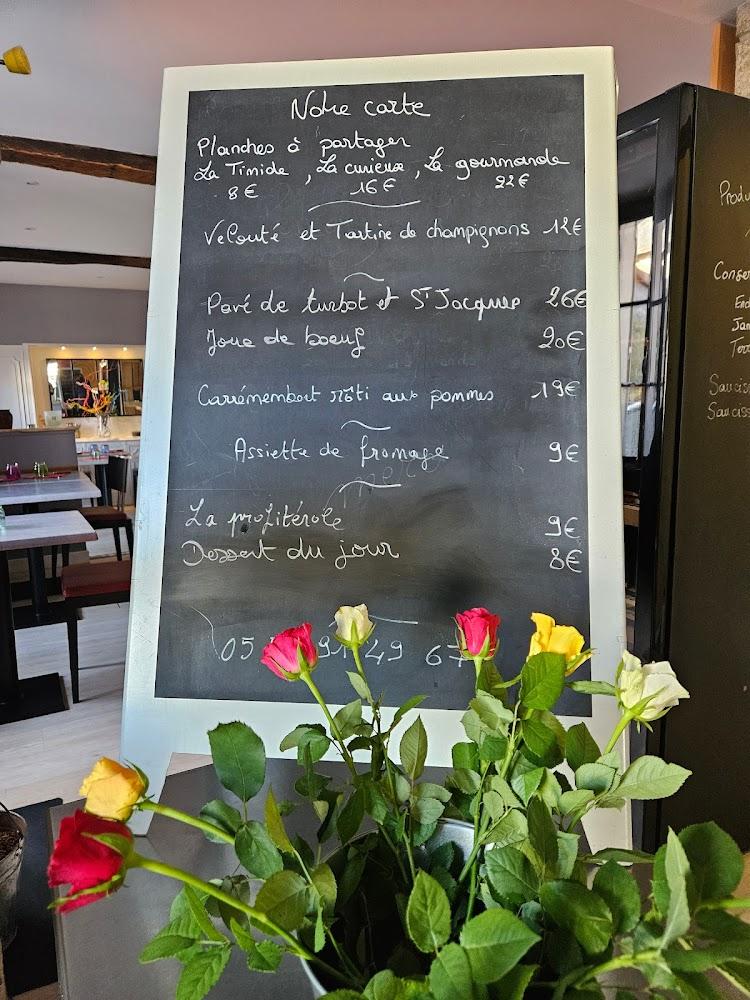 Notre carte
Planches à partager
La Timide , La curieuse , La gourmande
8€ 16€ 22€
Velouté et Tartine de champignons 12€
Pavé de turbot et St Jacques 26€
Joue de boeuf 20€
Carrémembert rôti aux pommes 19€
Assiette de fromage 9€
La profitérole 9€
Dessert du jour 8€
05 91 49 67
Produ
Conser
Jam
Terr
Saucis
Sauciss